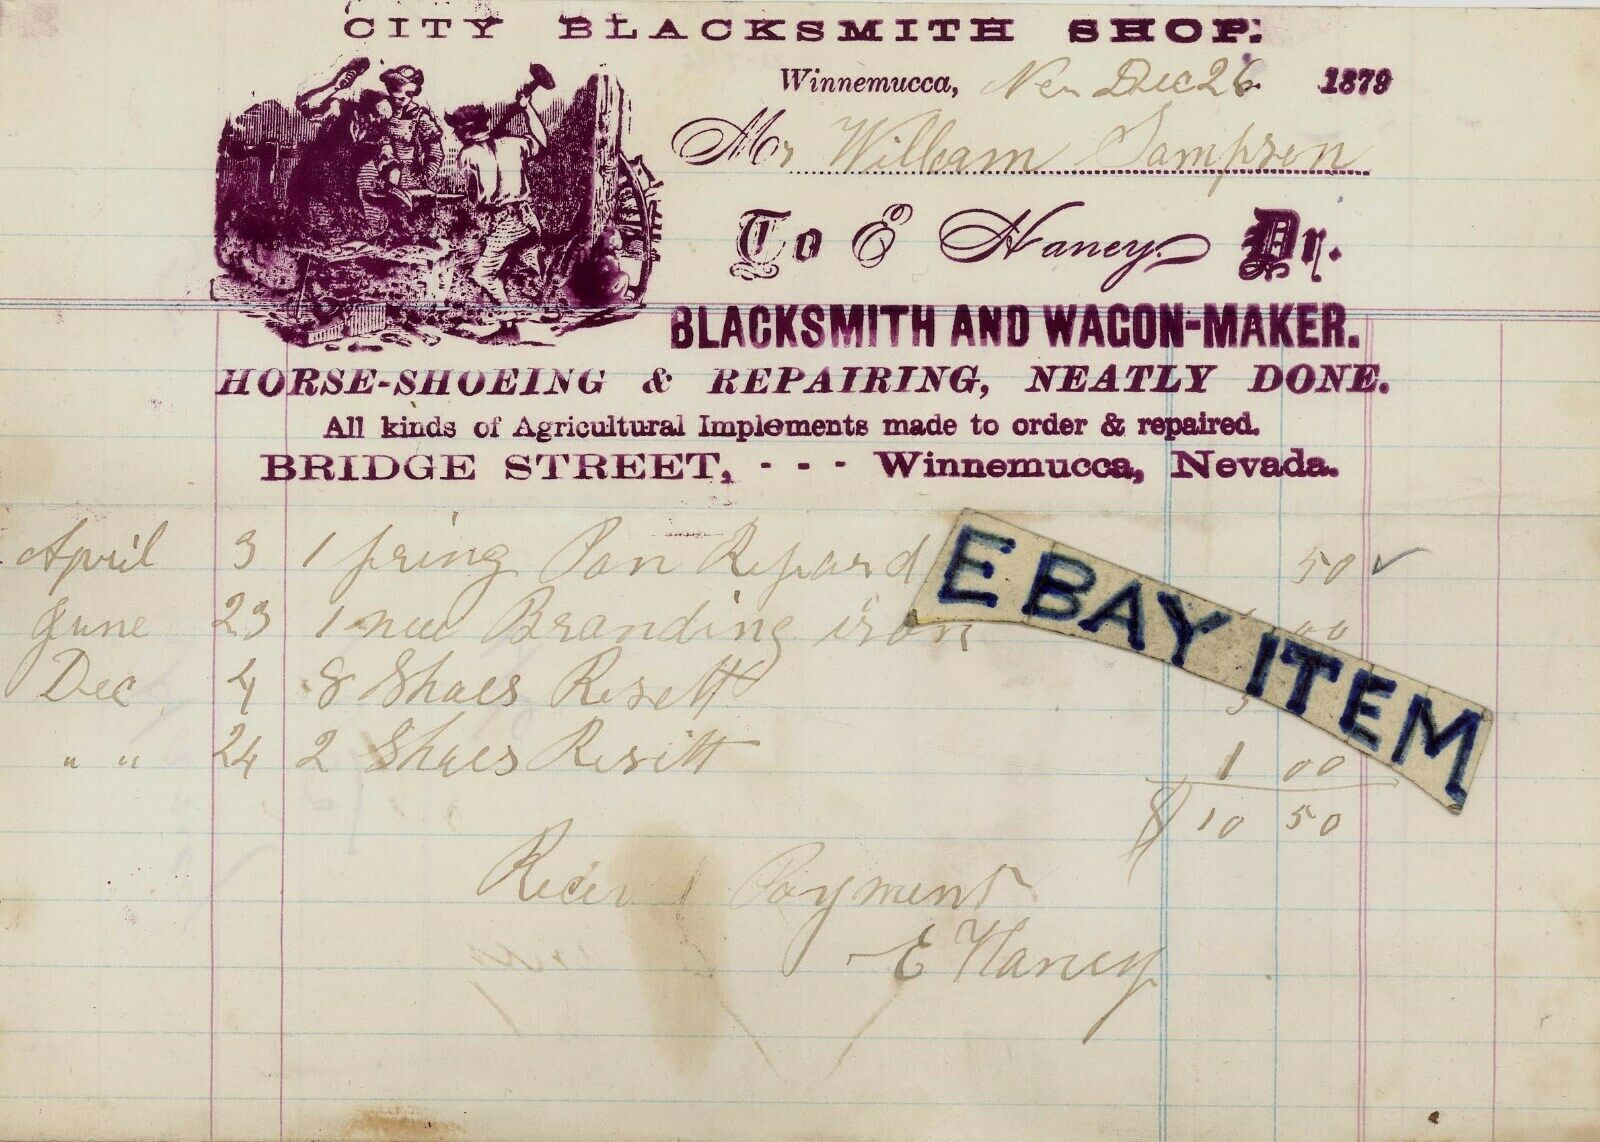 CITY BLACKSMITH SHOP.
Winnemucca, Nev Dec 26 1879
Mr William Sampson
To E Haney. Dr.
BLACKSMITH AND WAGON-MAKER.
HORSE-SHOEING & REPAIRING, NEATLY DONE.
All kinds of Agricultural Implements made to order & repaired.
BRIDGE STREET, - - - Winnemucca, Nevada.
April 3 1 Pan 50
June 23 1 new Branding iron 00
Dec 4 8 Shoes Resett
" " 24 2 Shoes Resitt 1 00
$ 10 50
Payment
E Haney
E BAY ITEM